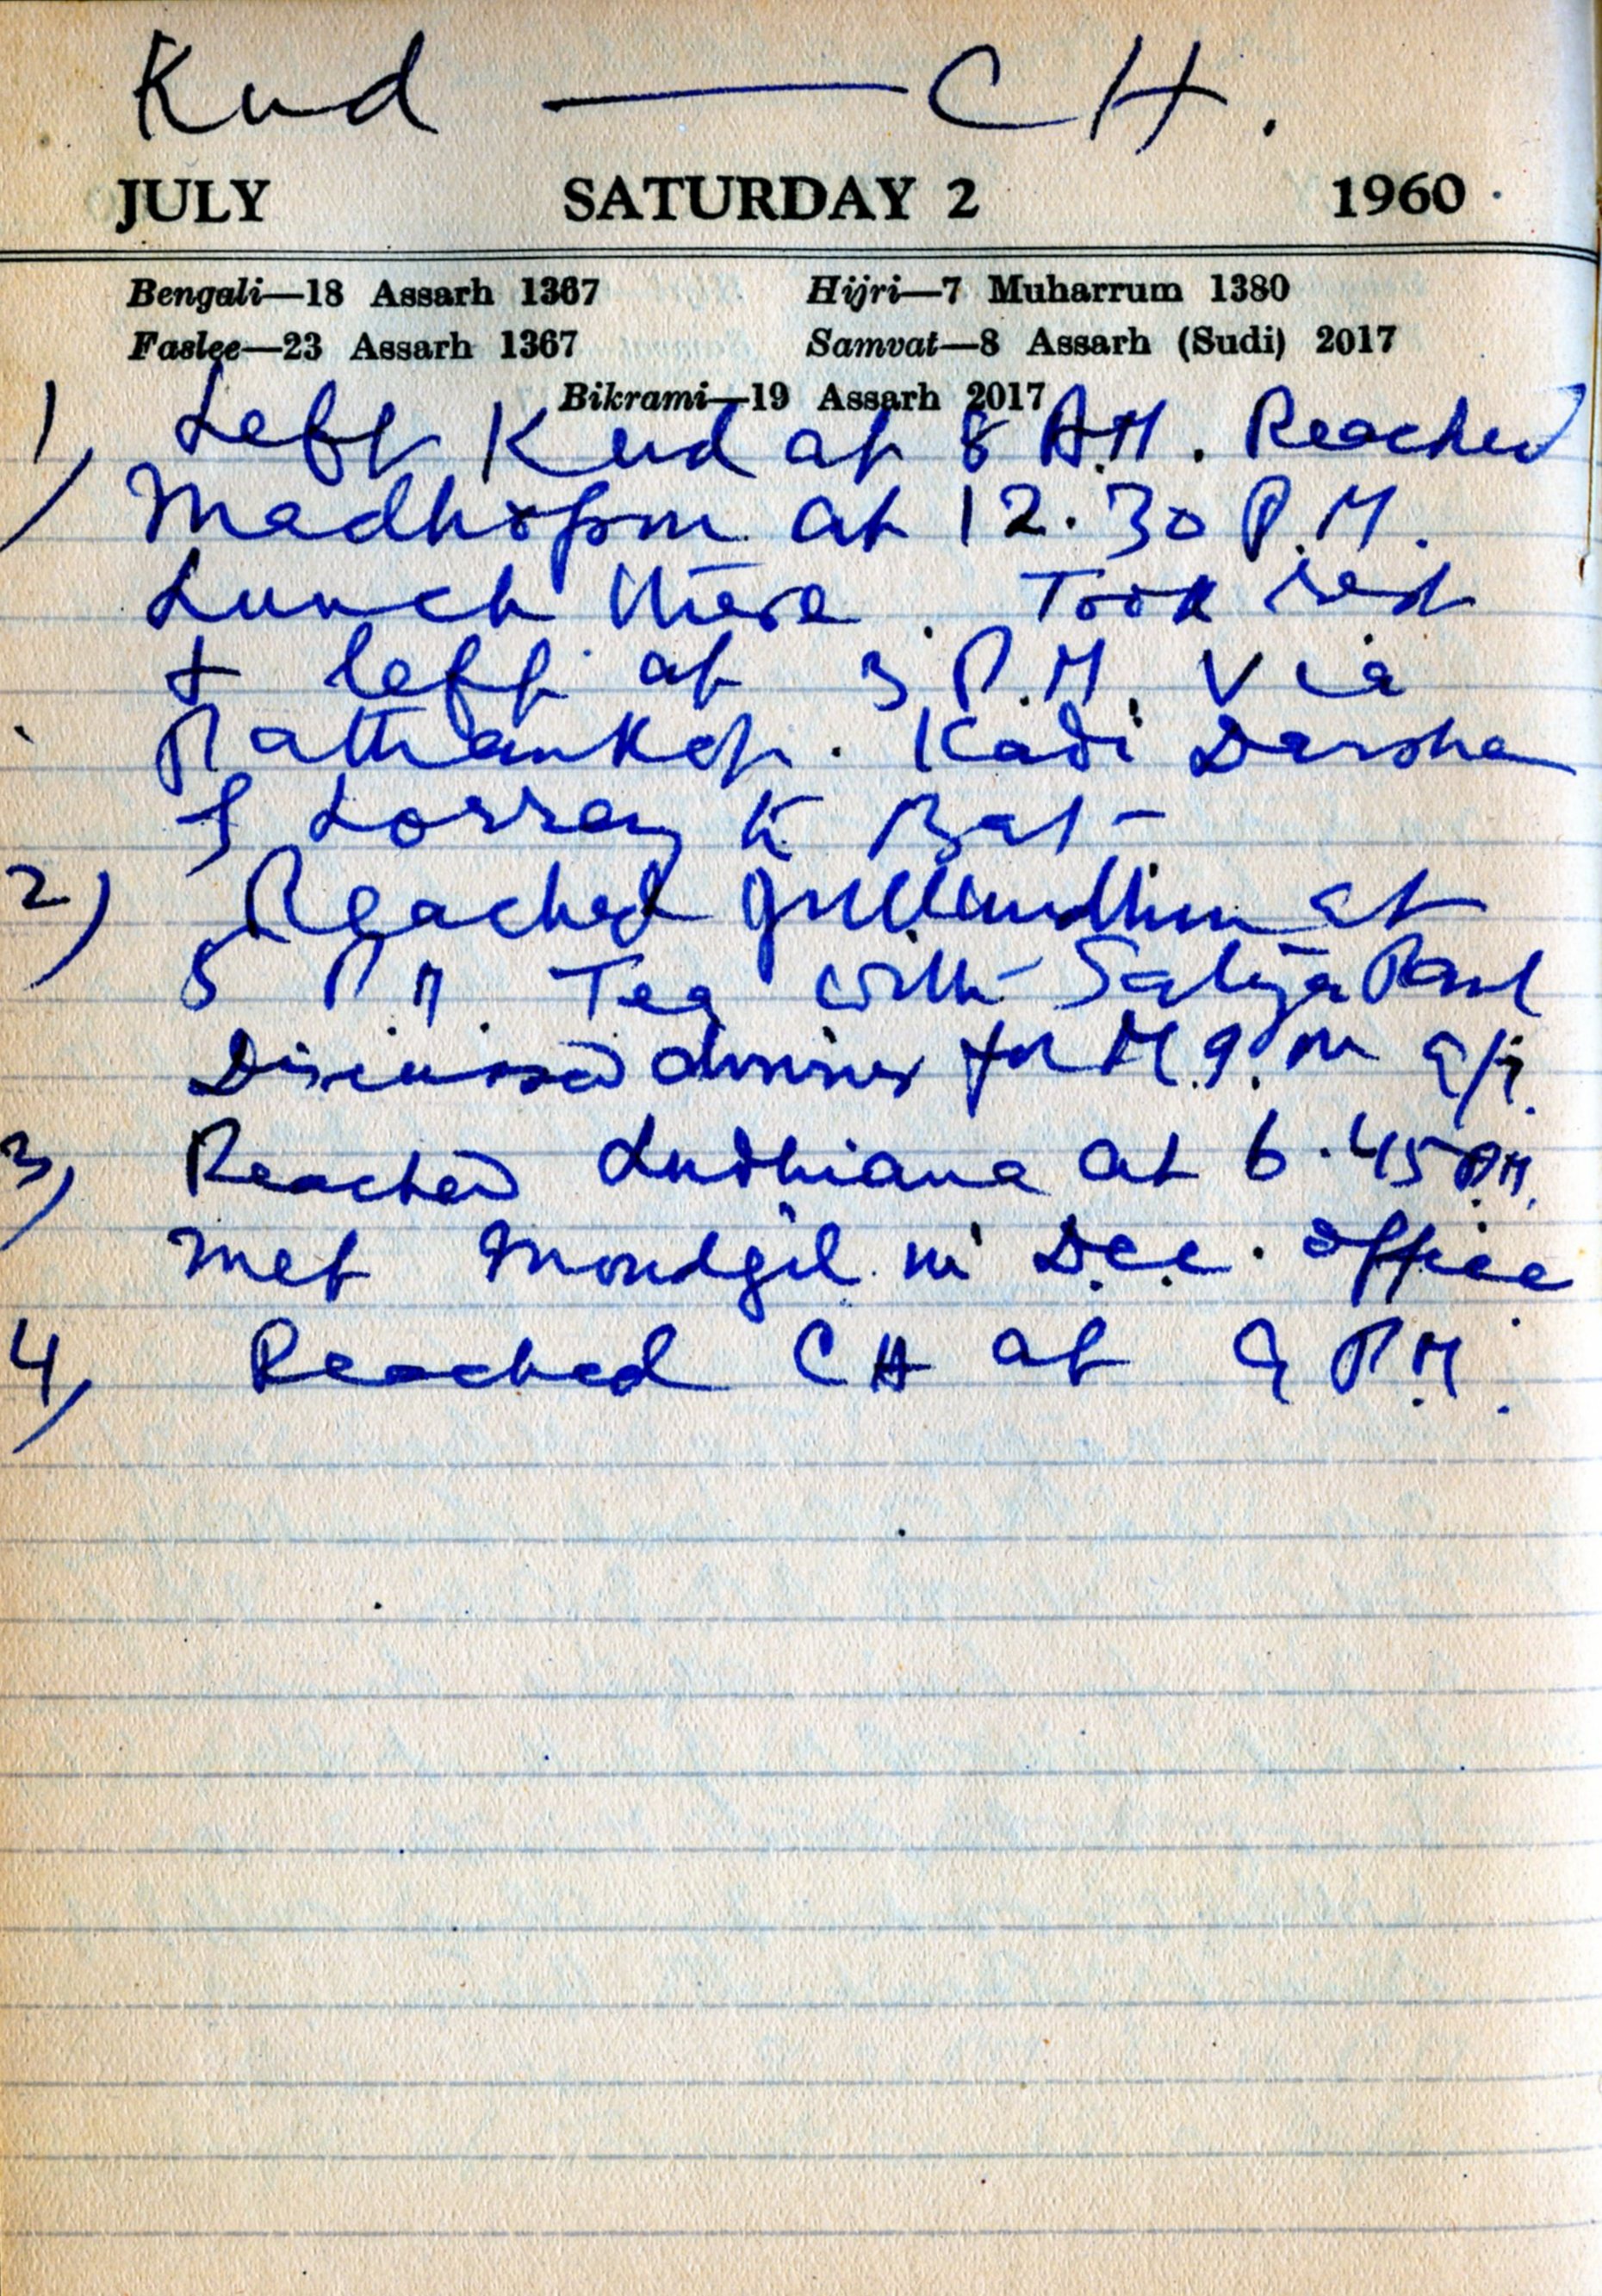 Kud — CH.
JULY SATURDAY 2 1960
Bengali—18 Assarh 1367 Hijri—7 Muharrum 1380
Faslee—23 Assarh 1367 Samvat—8 Assarh (Sudi) 2017
Bikrami—19 Assarh 2017
1) Left Kud at 8 A.M. Reached
Madhopur at 12.30 P.M.
Lunch there. Took rest
& left at 3 P.M. via
Pathankot. Kadi Darsha
2) Reached Jullundhur at
5 P.M. Tea with Satya Paul
Discussed dinner for M.G. on 9/7.
3) Reached Ludhiana at 6.45 P.M.
met Moudgil in D.C.C. office
4) Reached CH at 9 P.M.